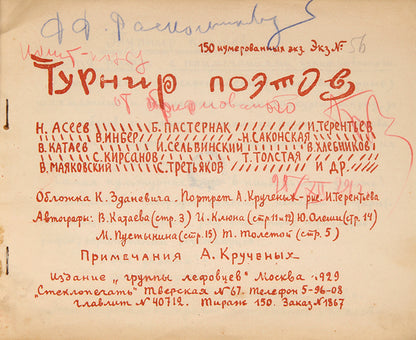 Ф.Ф. Раскольникову
150 нумерованных экз. Экз. № 56
Турнир поэтов
от
Н. Асеев Б. Пастернак И. Терентьев
В. Инбер Н. Саконская
В. Катаев И. Сельвинский В. Хлебников
С. Кирсанов Т. Толстая
В. Маяковский С. Третьяков и др.
Обложка К. Зданевича. Портрет А. Крученых – рис. И. Терентьева
Автографы: В. Катаева (стр. 3) И. Клюна (стр. 11 и 12) Ю. Олеши (стр. 14)
М. Пустынина (стр. 15) Т. Толстой (стр. 5)
Примечания А. Крученых
Издание „группы лефовцев" Москва 1929
„Стеклопечать" Тверская № 67. Телефон 5-96-08
Главлит № 40712. Тираж 150. Заказ № 1867